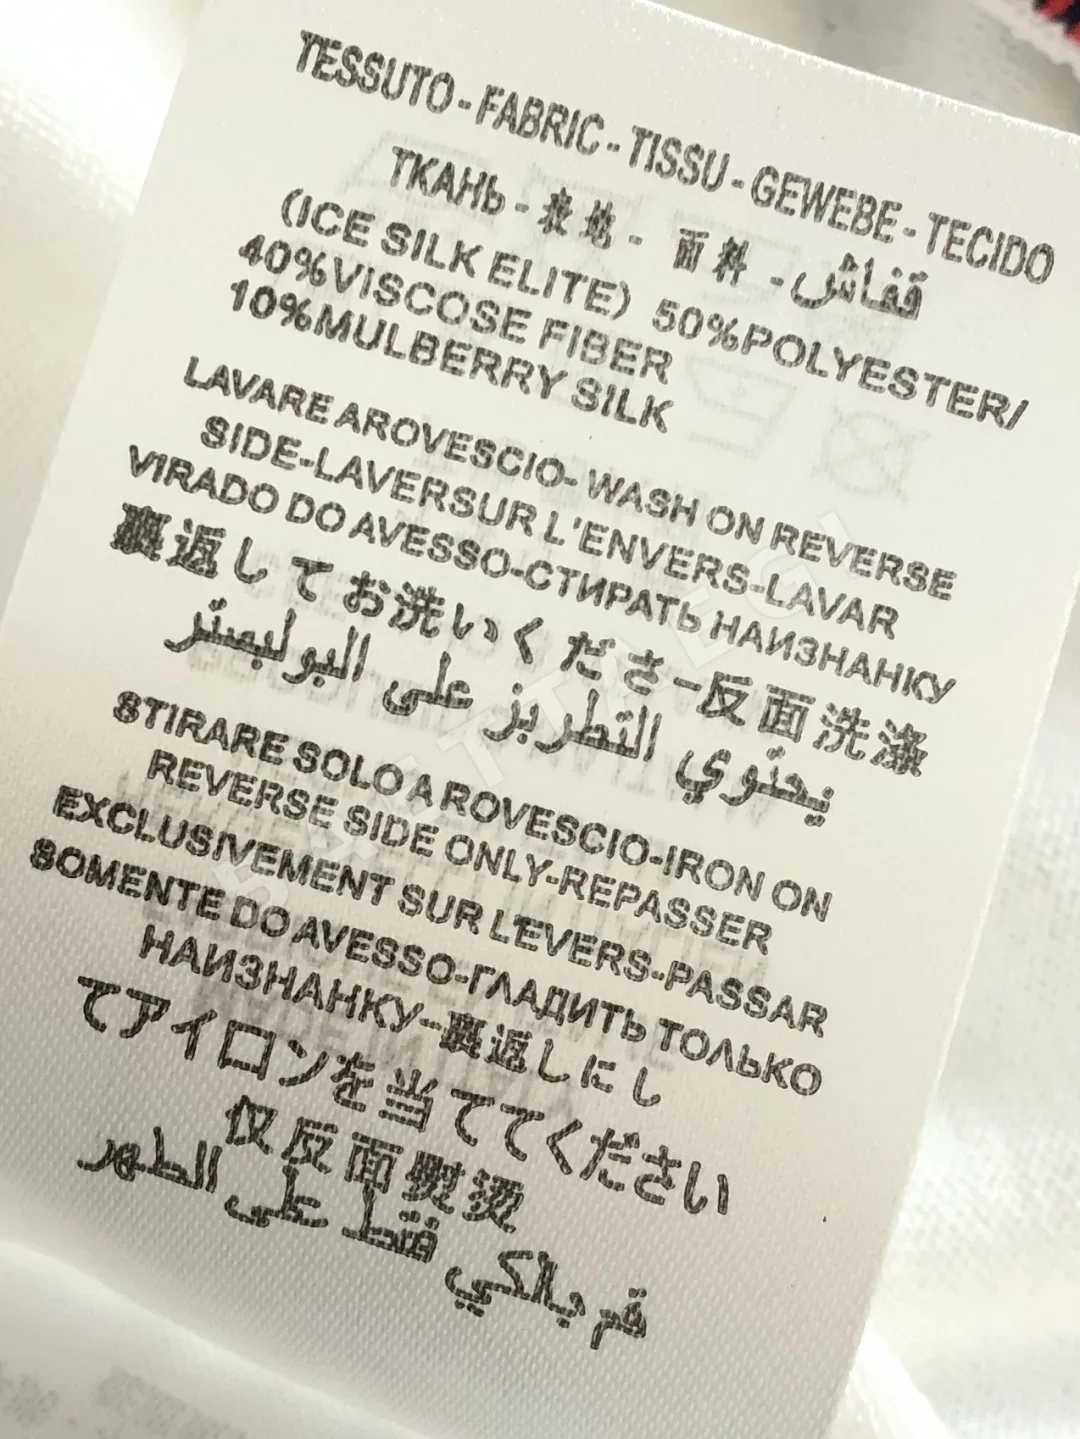 TESSUTO - FABRIC - TISSU - GEWEBE - TECIDO
ТКАНЬ - 表地 - 面料 - قفاش
(ICE SILK ELITE) 50%POLYESTER/
40%VISCOSE FIBER
10%MULBERRY SILK
LAVARE AROVESCIO- WASH ON REVERSE
SIDE-LAVERSUR L'ENVERS-LAVAR
VIRADO DO AVESSO-СТИРАТЬ НАИЗНАНКУ
裏返してお洗いくださ-反面洗涤
يحتوي التطريز على البوليستر
STIRARE SOLO A ROVESCIO-IRON ON
REVERSE SIDE ONLY-REPASSER
EXCLUSIVEMENT SUR L'EVERS-PASSAR
SOMENTE DO AVESSO-ГЛАДИТЬ ТОЛЬКО
НАИЗНАНКУ-裏返しにし
てアイロンを当ててください
仅反面熨烫
قم بالكي فقط على الظهر